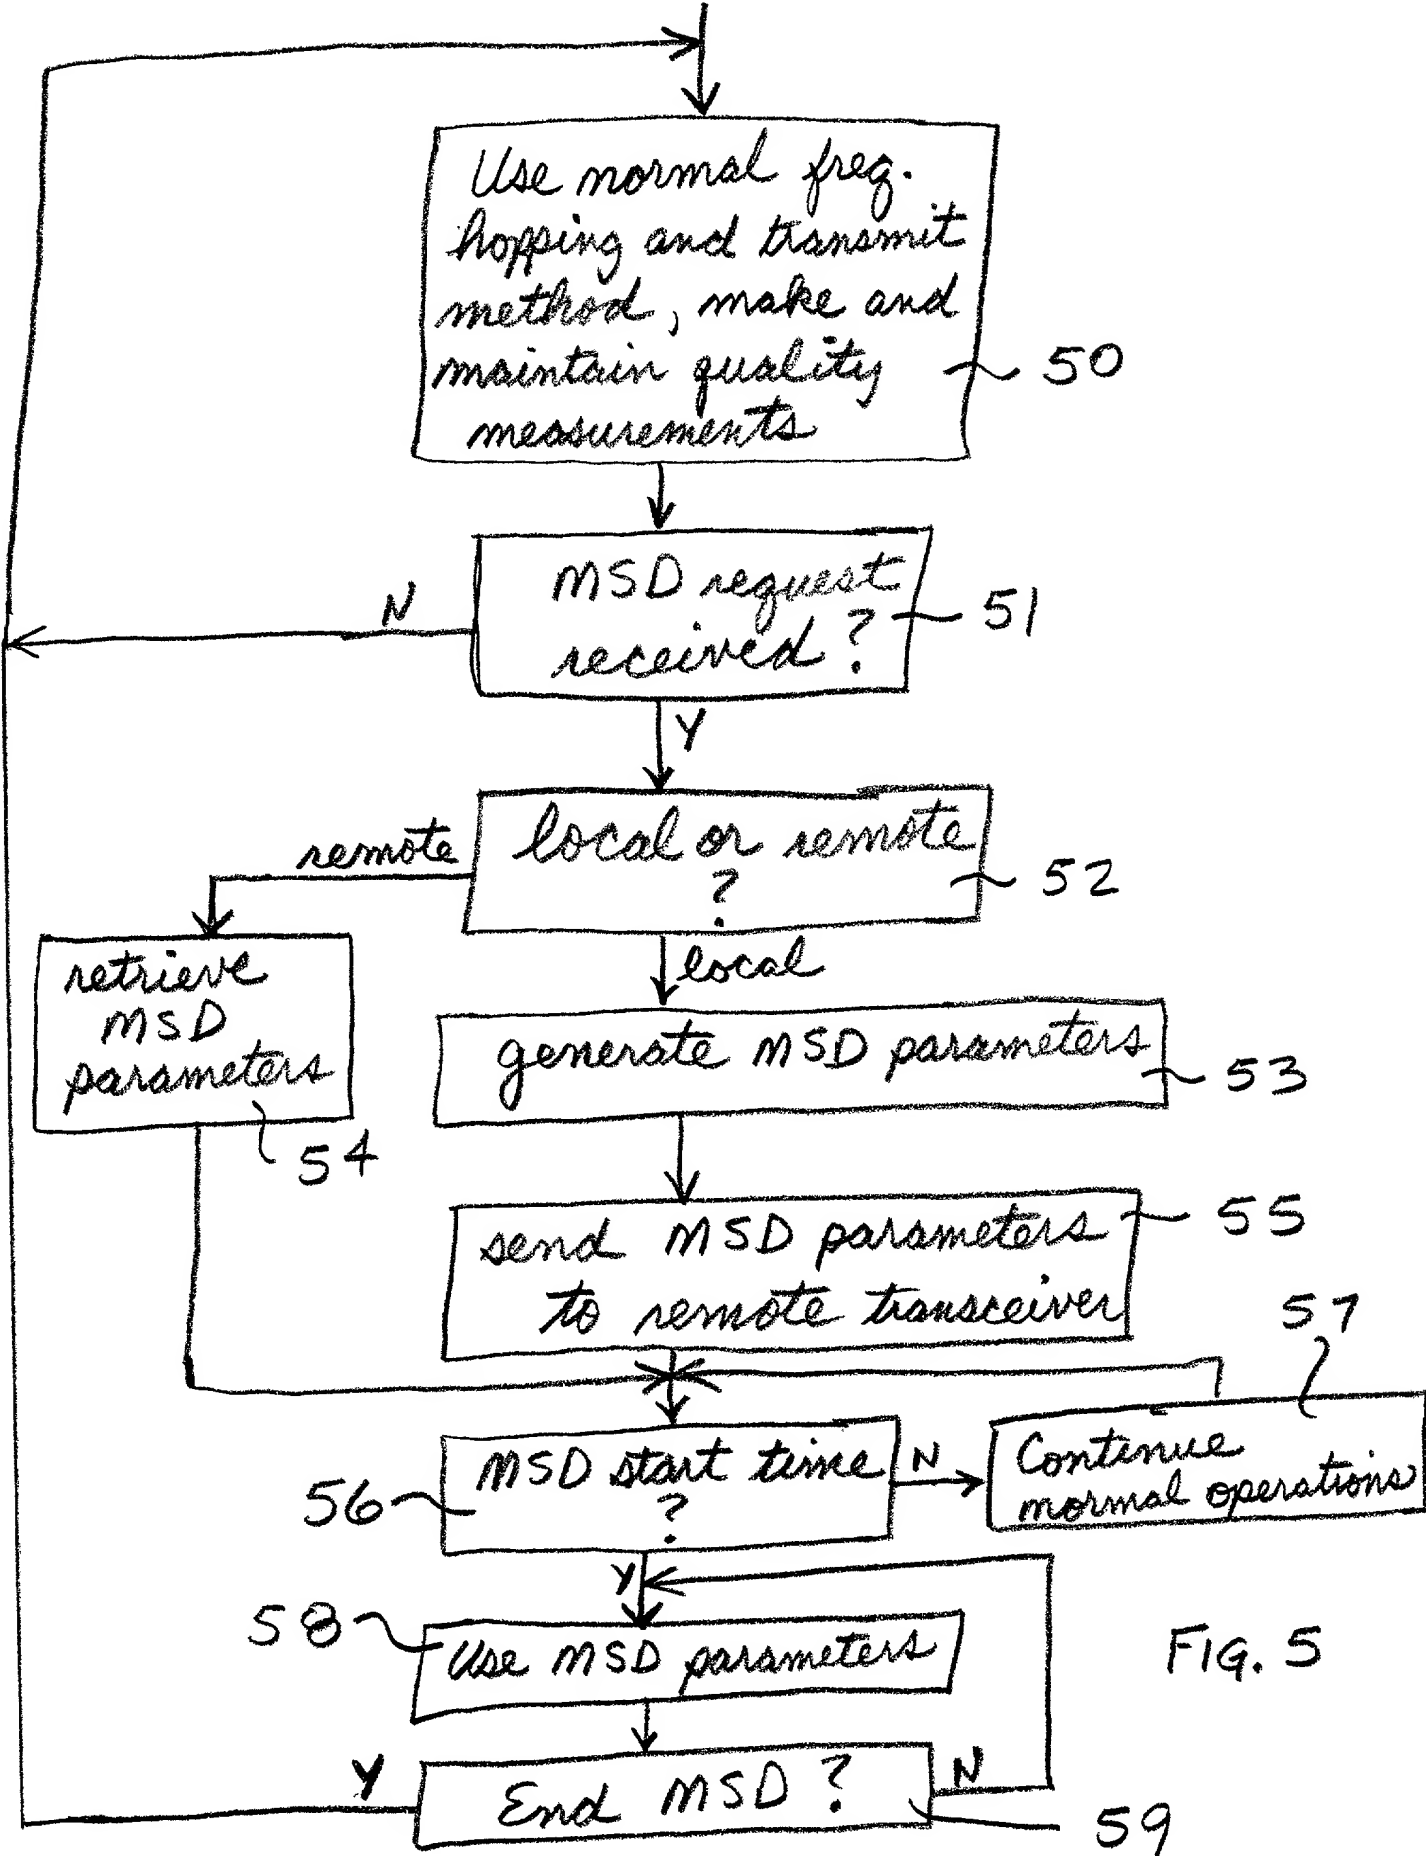 Use normal freq.
hopping and transmit
method, make and
maintain quality
measurements
50
MSD request
received?
51
N
Y
local or remote
?
52
remote
local
retrieve
MSD
parameters
54
generate MSD parameters
53
send MSD parameters
to remote transceiver
55
57
MSD start time
?
56
N
Continue
normal operations
Y
58
Use MSD parameters
FIG. 5
End MSD?
Y
N
59